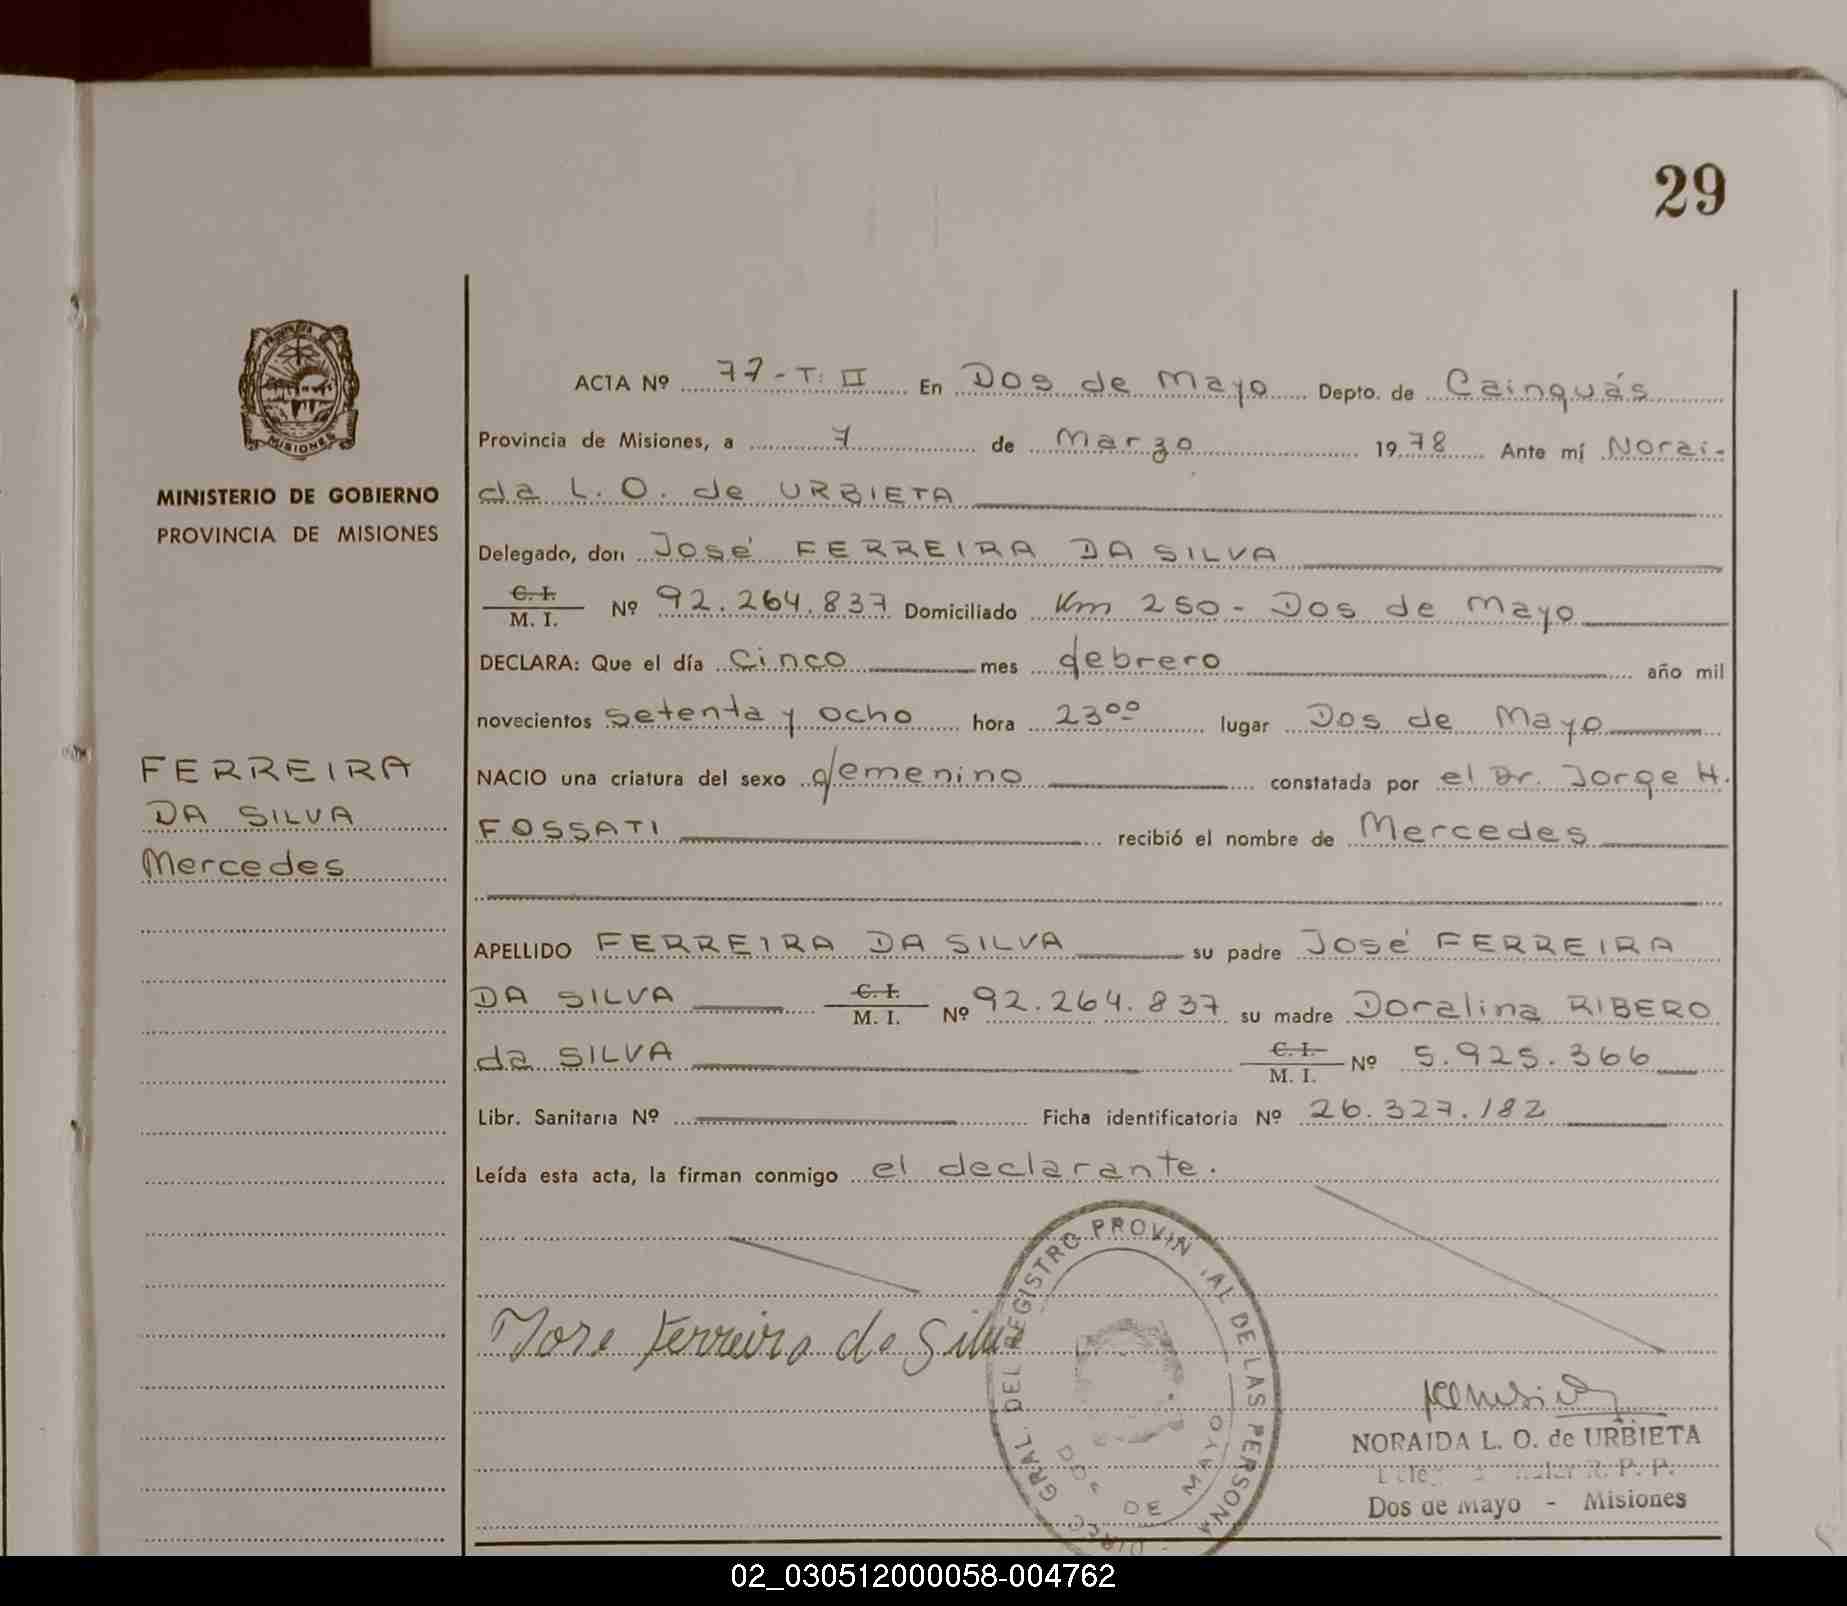 29
MISIONES
MINISTERIO DE GOBIERNO
PROVINCIA DE MISIONES
FERREIRA
DA SILVA
Mercedes
ACTA Nº 77-T: II En Dos de Mayo Depto. de Cainguás
Provincia de Misiones, a 7 de Marzo 1978 Ante mí Norai-
da L. O. de URBIETA
Delegado, don José FERREIRA DA SILVA
C. I. / M. I. Nº 92.264.837 Domiciliado Km 250 - Dos de Mayo
DECLARA: Que el día cinco mes febrero año mil
novecientos setenta y ocho hora 23ºº lugar Dos de Mayo
NACIO una criatura del sexo femenino constatada por el Dr. Jorge H.
FOSSATI recibió el nombre de Mercedes
APELLIDO FERREIRA DA SILVA su padre José FERREIRA
DA SILVA C. I. / M. I. Nº 92.264.837 su madre Doralina RIBERO
da SILVA C. I. / M. I. Nº 5.925.366
Libr. Sanitaria Nº Ficha identificatoria Nº 26.327.182
Leída esta acta, la firman conmigo el declarante.
Jose Ferreira da Silva
DIREC. GRAL. DEL REGISTRO PROVIN AL DE LAS PERSONA
DOS DE MAYO
NORAIDA L. O. de URBIETA
R. P. P.
Dos de Mayo - Misiones
02_030512000058-004762